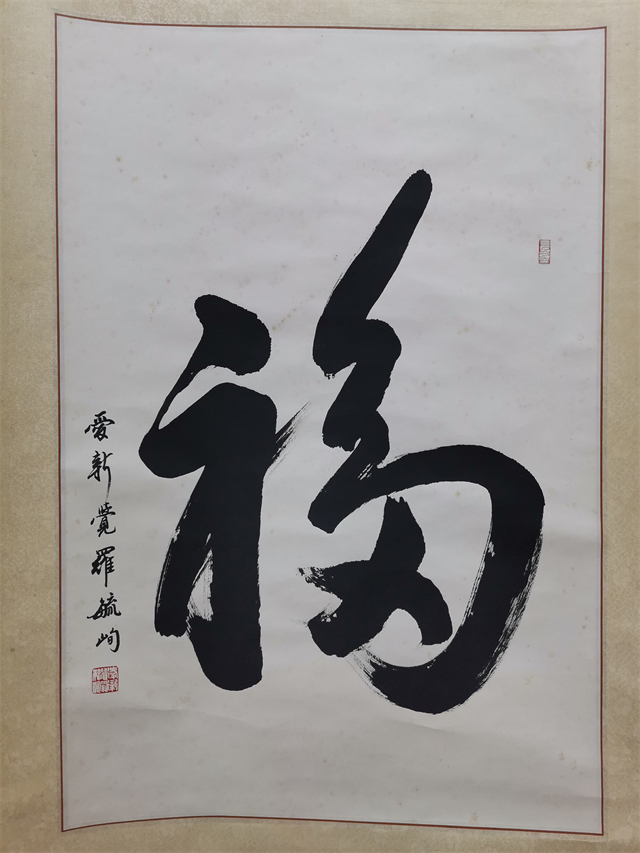 福
愛新覺羅毓峋